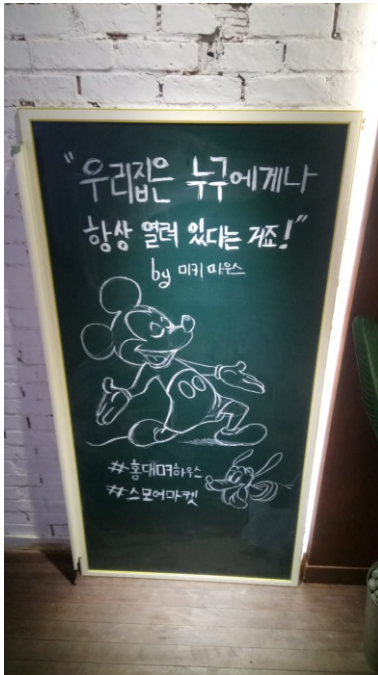 "우리집은 누구에게나
항상 열려 있다는 거죠!"
by 미키마우스
#홍대미키하우스
#스모어마켓